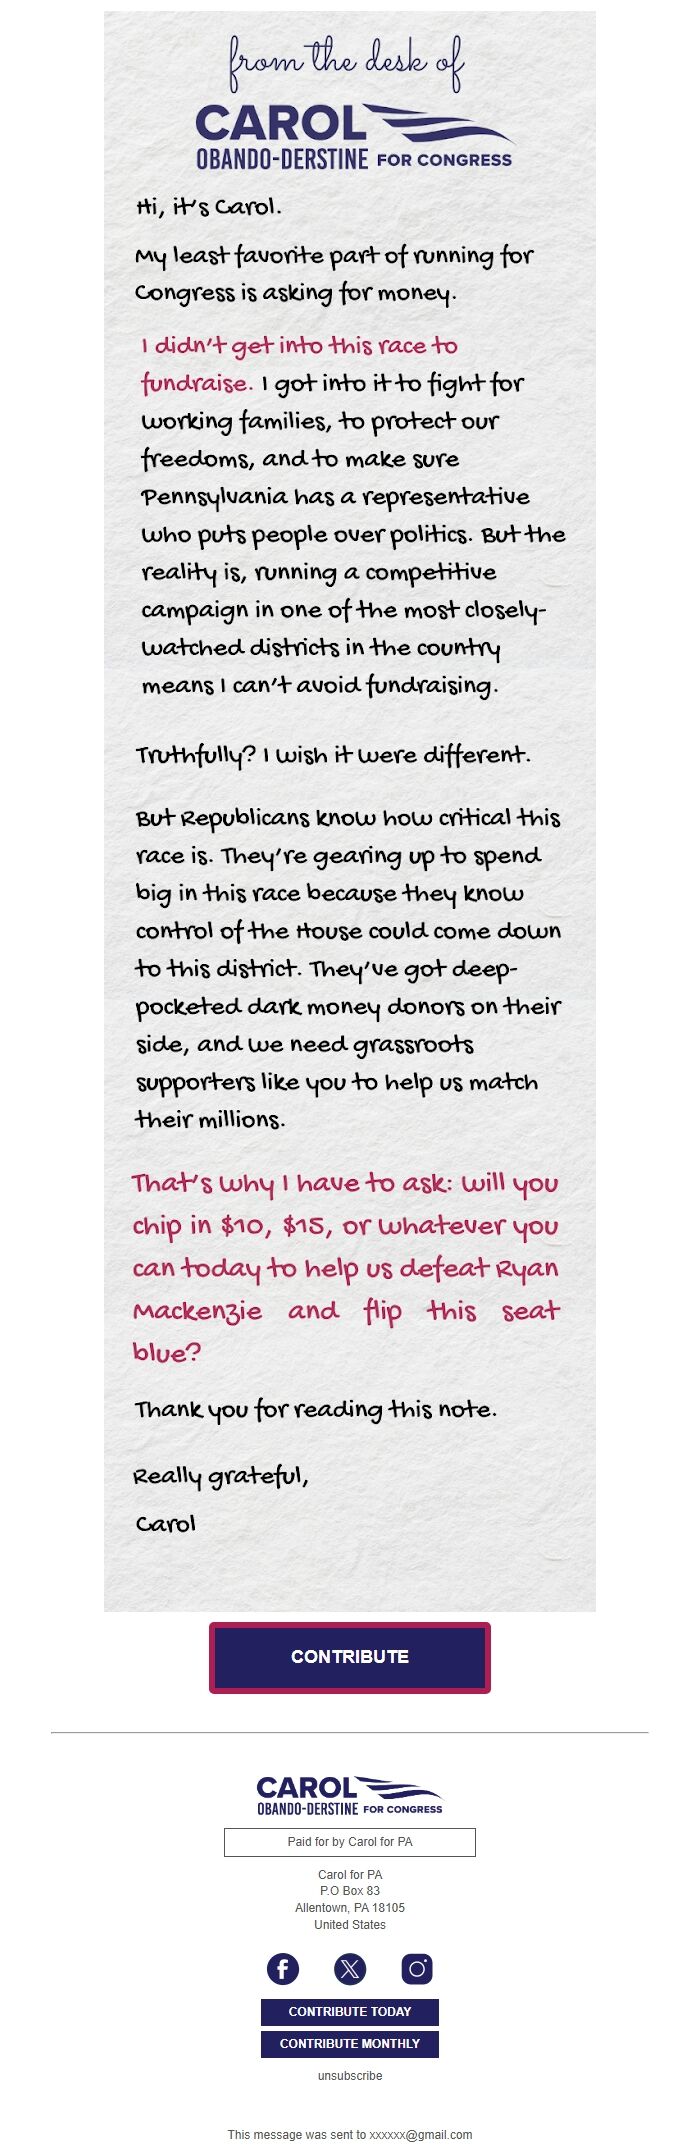 from the desk of
CAROL
OBANDO-DERSTINE FOR CONGRESS
Hi, it's Carol.
My least favorite part of running for
Congress is asking for money.
I didn't get into this race to
fundraise. I got into it to fight for
working families, to protect our
freedoms, and to make sure
Pennsylvania has a representative
who puts people over politics. But the
reality is, running a competitive
campaign in one of the most closely-
watched districts in the country
means I can't avoid fundraising.
Truthfully? I wish it were different.
But Republicans know how critical this
race is. They're gearing up to spend
big in this race because they know
control of the House could come down
to this district. They've got deep-
pocketed dark money donors on their
side, and we need grassroots
supporters like you to help us match
their millions.
That's why I have to ask: will you
chip in $10, $15, or whatever you
can today to help us defeat Ryan
Mackenzie and flip this seat
blue?
Thank you for reading this note.
Really grateful,
Carol
CONTRIBUTE
CAROL
OBANDO-DERSTINE FOR CONGRESS
Paid for by Carol for PA
Carol for PA
P.O Box 83
Allentown, PA 18105
United States
CONTRIBUTE TODAY
CONTRIBUTE MONTHLY
unsubscribe
This message was sent to xxxxxx@gmail.com